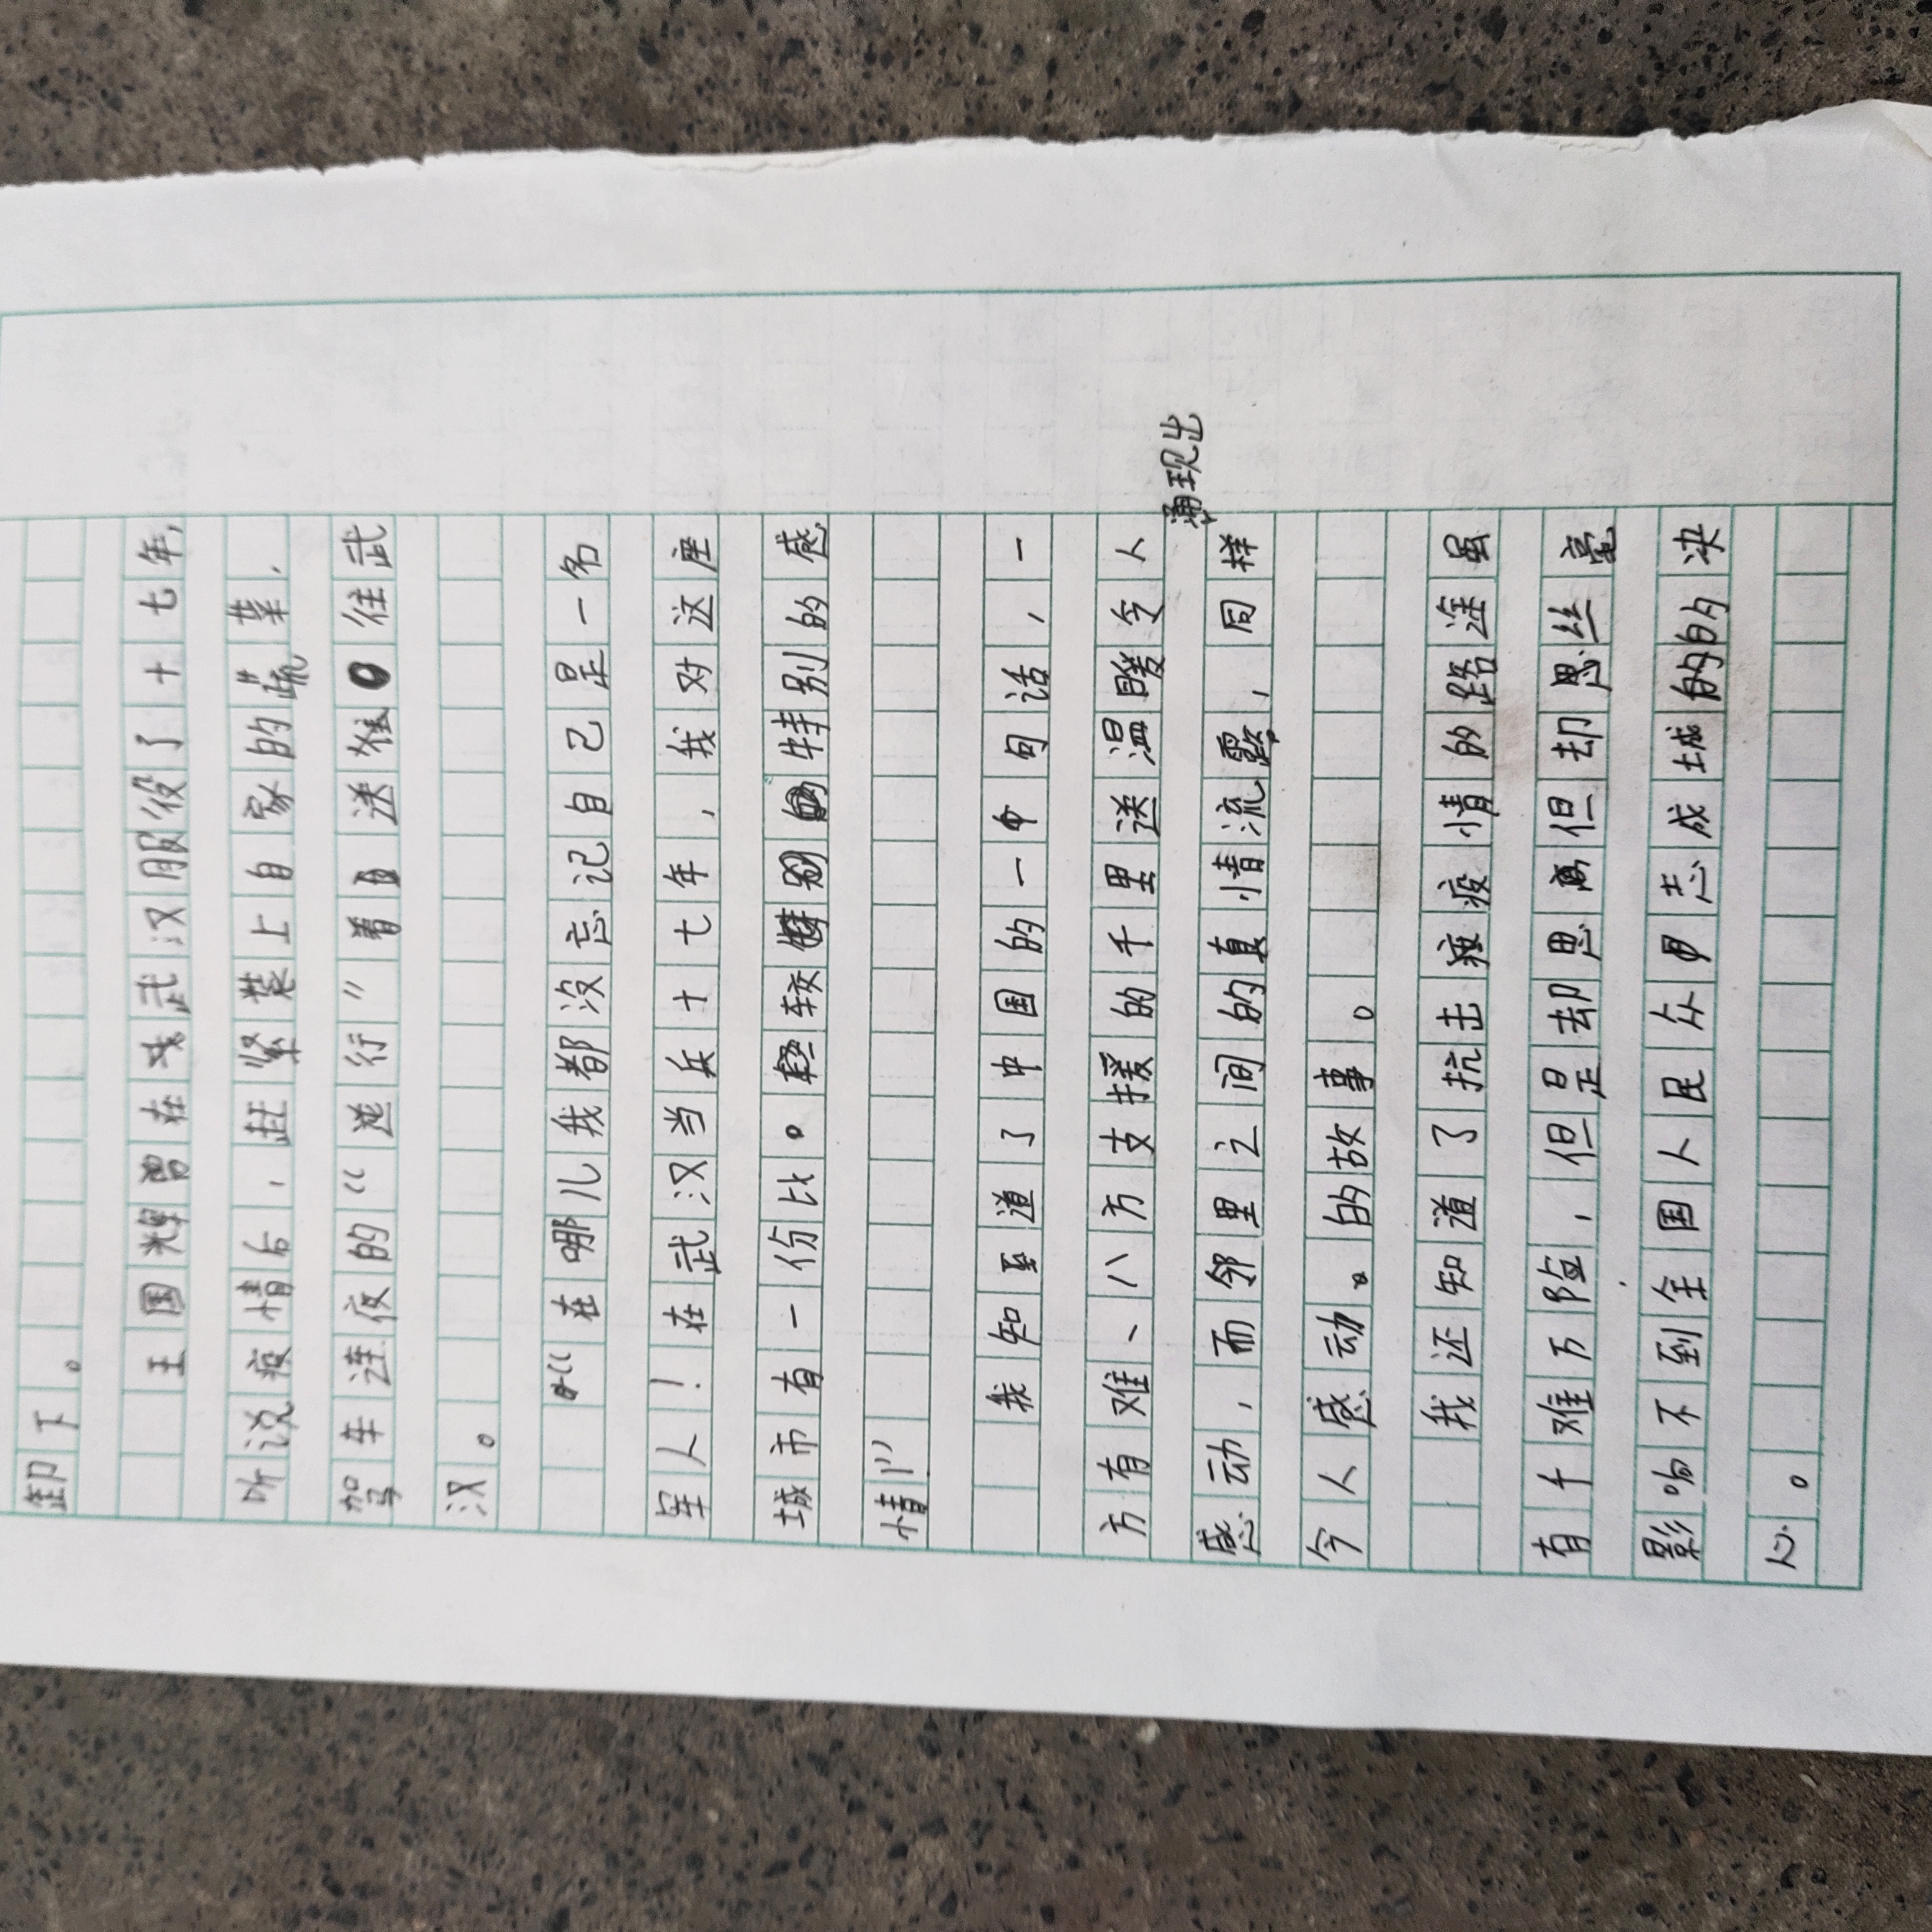 卸下。
王国辉曾在武汉服役了十七年,
听说疫情后,赶紧装上自家的蔬菜,
驾车连夜的“逆行”着送往武
汉。
“在哪儿我都没忘记自己是一名
军人!在武汉当兵十七年,我对这座
城市有一份比。较特别的感
情”
我知道了中国的一句话,一
方有难、八方支援的千里送温暖令人
感动,而邻里之间的真情流露,同样涌现出
令人感动。的故事。
我还知道了抗击疫情的路途虽
有千难万险,但是却思离但却思丝毫
影响不到全国人民众志成城的的决
心。